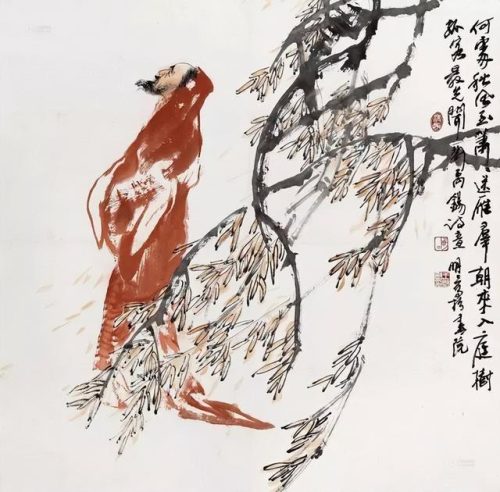 何處秋風至蕭〻送雁羣朝來入庭樹
孤客最先聞劉禹錫詩意